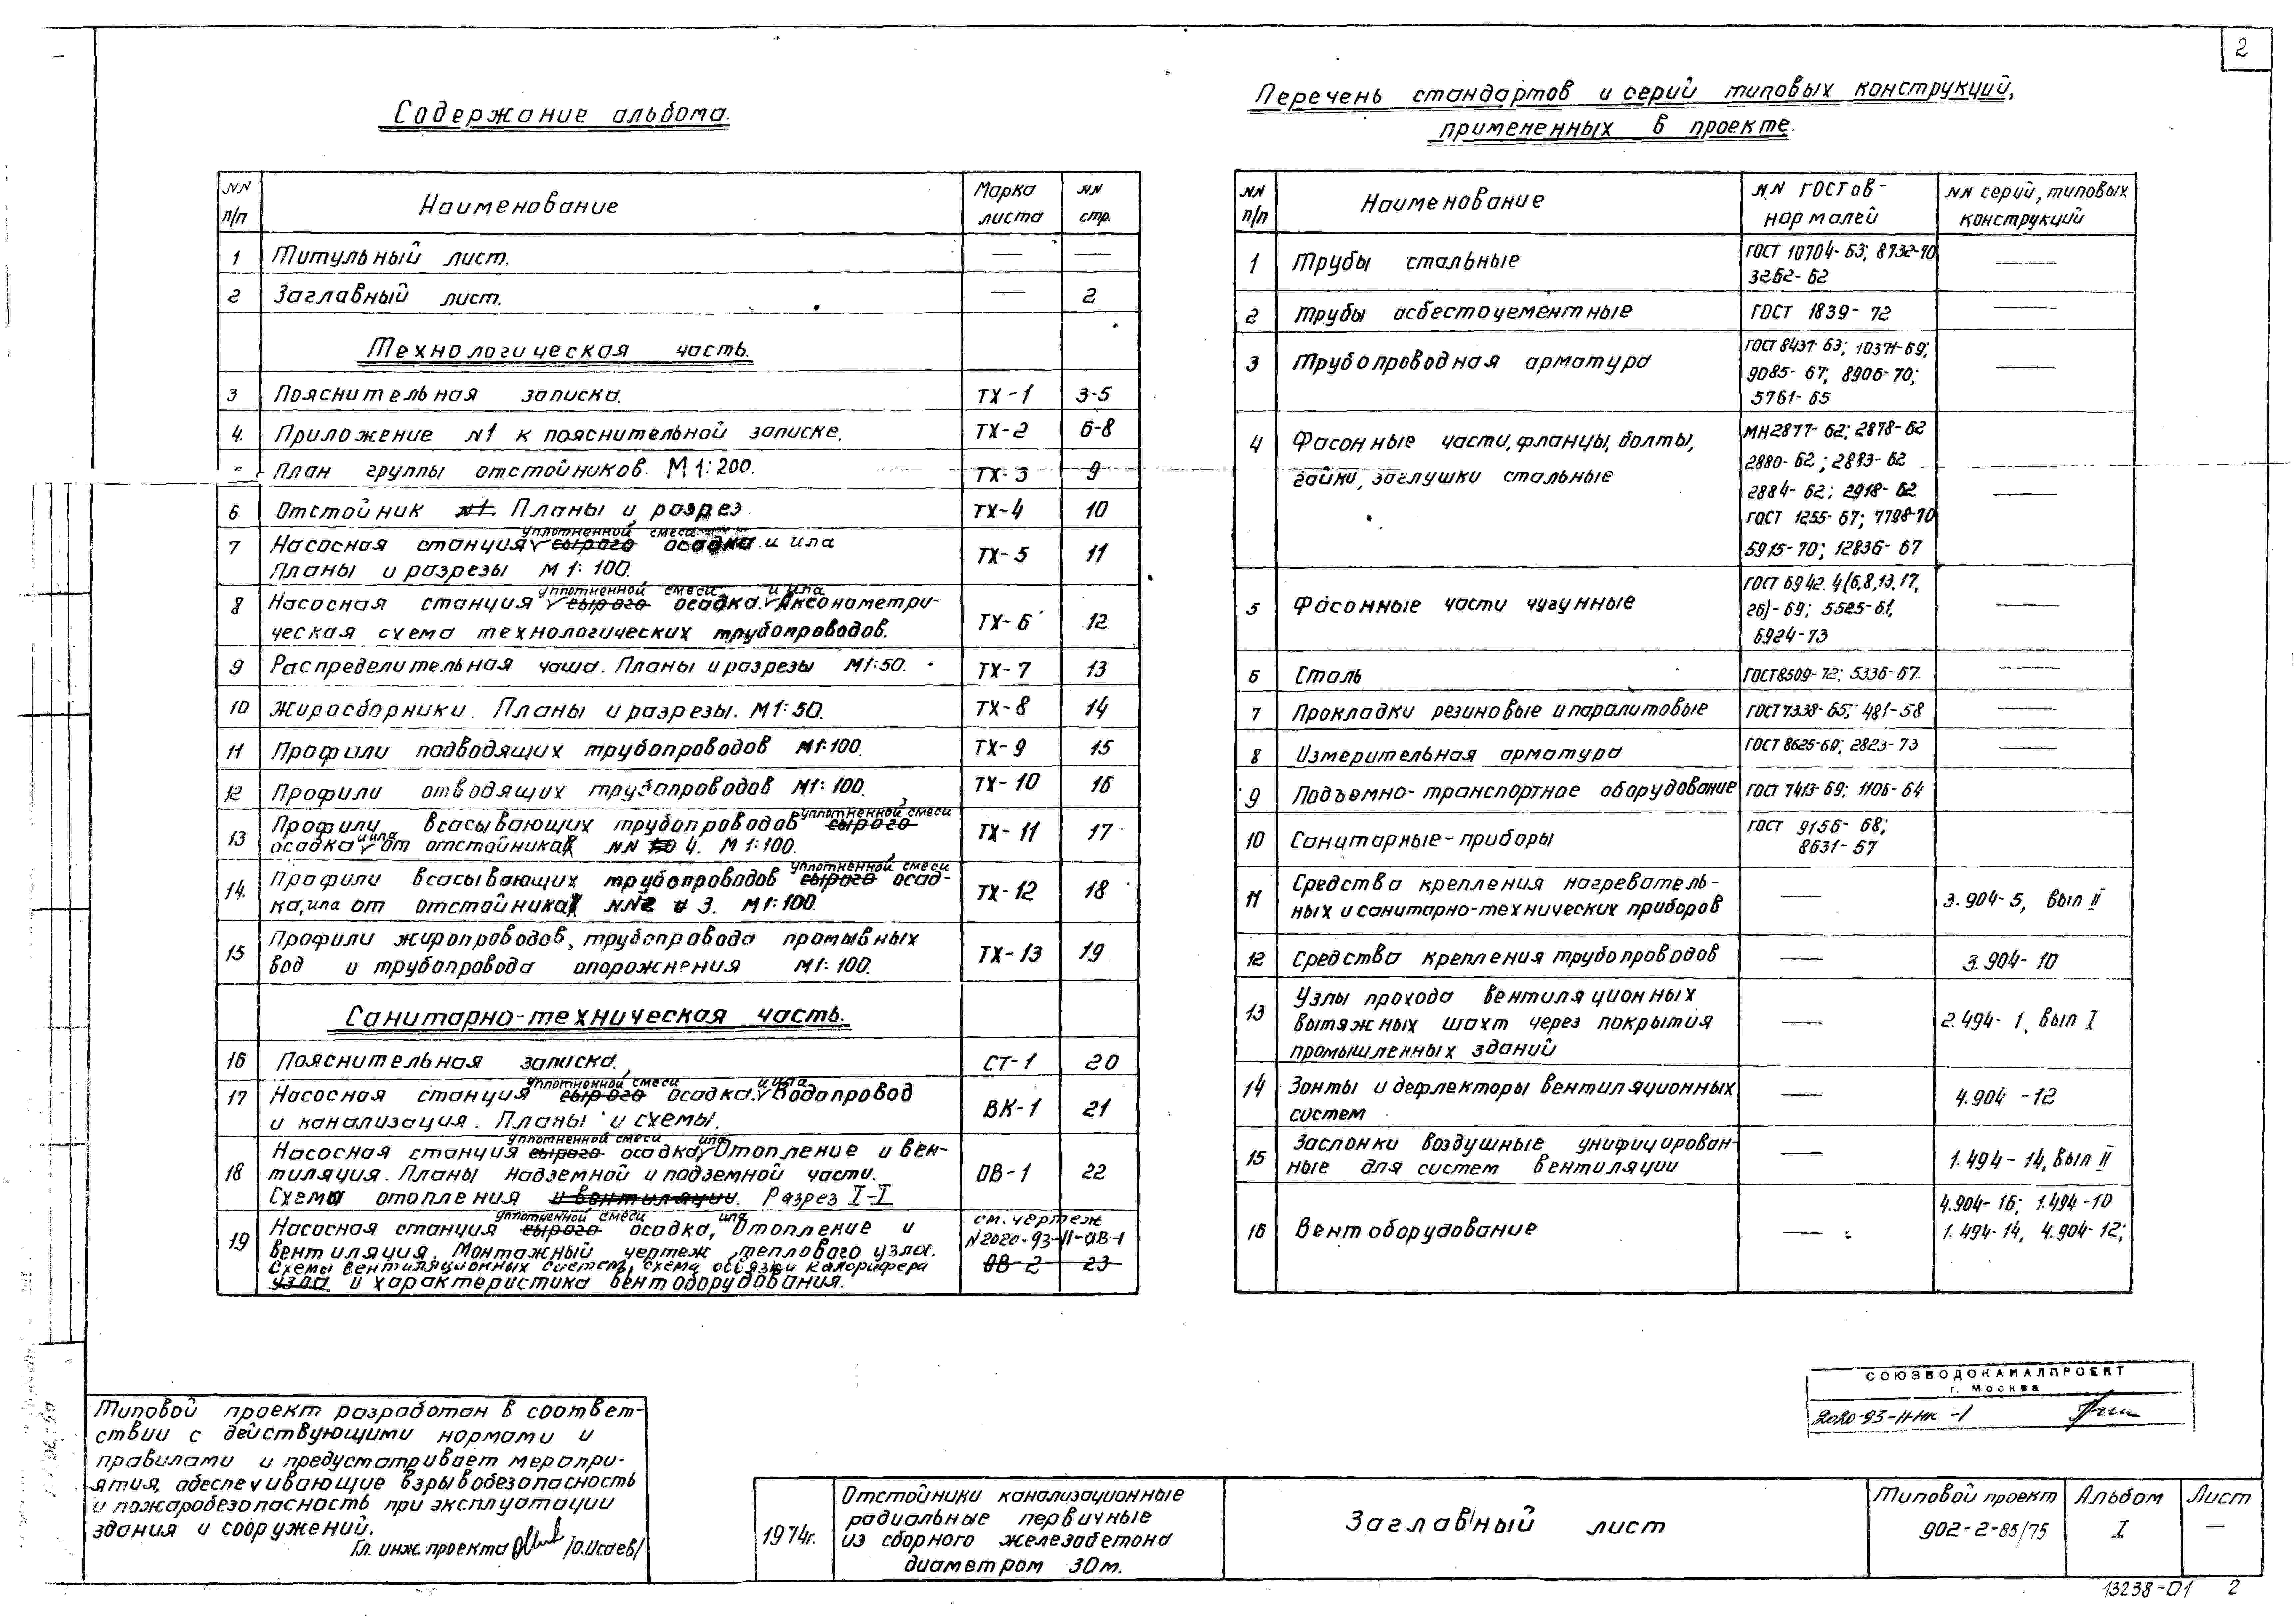 2
Содержание альбома.
NN п/п Наименование Марка листа NN стр.
1 Титульный лист. — —
2 Заглавный лист. — 2
Технологическая часть.
3 Пояснительная записка. ТХ-1 3-5
4. Приложение N1 к пояснительной записке. ТХ-2 6-8
План группы отстойников. М 1:200. ТХ-3 9
6 Отстойник N1. Планы и разрез ТХ-4 10
уплотненной смеси
7 Насосная станция сырого осадка и ила ТХ-5 11
Планы и разрезы М 1:100.
уплотненной смеси и ила
8 Насосная станция сырого осадка. Аксонометри-
ческая схема технологических трубопроводов. ТХ-6 12
9 Распределительная чаша. Планы и разрезы М1:50. ТХ-7 13
10 Жиросборники. Планы и разрезы. М1:50. ТХ-8 14
11 Профили подводящих трубопроводов М1:100. ТХ-9 15
12 Профили отводящих трубопроводов М1:100. ТХ-10 16
уплотненной смеси
13 Профили всасывающих трубопроводов сырого ТХ-11 17
и ила
осадка от отстойника NN 4. М 1:100.
уплотненной смеси
14. Профили всасывающих трубопроводов сырого осад-
ка, ила от отстойника NN2 и 3. М1:100. ТХ-12 18
15 Профили жиропроводов, трубопровода промывных
вод и трубопровода опорожнения М1:100. ТХ-13 19
Санитарно-техническая часть.
16 Пояснительная записка. СТ-1 20
уплотненной смеси и ила
17 Насосная станция сырого осадка. Водопровод
и канализация. Планы и схемы. ВК-1 21
уплотненной смеси ила
Насосная станция сырого осадка Отопление и вен-
18 тиляция. Планы надземной и подземной части. ОВ-1 22
Схема отопления и вентиляции. Разрез I-I
уплотненной смеси ила
19 Насосная станция сырого осадка, Отопление и см. чертеж
вентиляция. Монтажный чертеж теплового узла. N2020-93-II-ОВ-1
Схемы вентиляционных систем, схема обвязки калорифера ОВ-2 23
узла и характеристика вентоборудования.
Перечень стандартов и серий типовых конструкций,
примененных в проекте.
NN п/п Наименование NN ГОСТов-нормалей NN серий, типовых конструкций
1 Трубы стальные ГОСТ 10704-63; 8732-70 —
3262-62
2 Трубы асбестоцементные ГОСТ 1839-72 —
3 Трубопроводная арматура ГОСТ 8437-63; 10371-69; —
9085-67; 8906-70;
5761-65
4 Фасонные части, фланцы, болты, МН2877-62; 2878-62
гайки, заглушки стальные 2880-62; 2883-62
2884-62; 2918-62 —
ГОСТ 1255-67; 7798-70
5915-70; 12836-67
5 Фасонные части чугунные ГОСТ 6942.4(6,8,13,17, —
26)-69; 5525-61,
6924-73
6 Сталь ГОСТ8509-72; 5336-67 —
7 Прокладки резиновые и паралитовые ГОСТ 7338-65; 481-58 —
8 Измерительная арматура ГОСТ 8625-69; 2823-73 —
9 Подъемно-транспортное оборудование ГОСТ 7413-69; 1106-64
10 Санитарные-приборы ГОСТ 9156-68;
8631-57
11 Средства крепления нагреватель-
ных и санитарно-технических приборов — 3.904-5, вып II
12 Средства крепления трубопроводов — 3.904-10
13 Узлы прохода вентиляционных
вытяжных шахт через покрытия — 2.494-1, вып I
промышленных зданий
14 Зонты и дефлекторы вентиляционных — 4.904-12
систем
15 Заслонки воздушные унифицирован-
ные для систем вентиляции — 1.494-14, вып II
4.904-16; 1.494-10
16 Вентоборудование — 1.494-14, 4.904-12;
СОЮЗВОДОКАНАЛПРОЕКТ
г. Москва
Типовой проект разработан в соответ-
ствии с действующими нормами и
правилами и предусматривает меропри-
ятия, обеспечивающие взрывобезопасность
и пожаробезопасность при эксплуатации
здания и сооружений.
Гл. инж. проекта /О.Исаев/
1974г.
Отстойники канализационные
радиальные первичные
из сборного железобетона
диаметром 30м.
Заглавный лист
Типовой проект
902-2-85/75
Альбом
I
Лист
—
13238-01 2